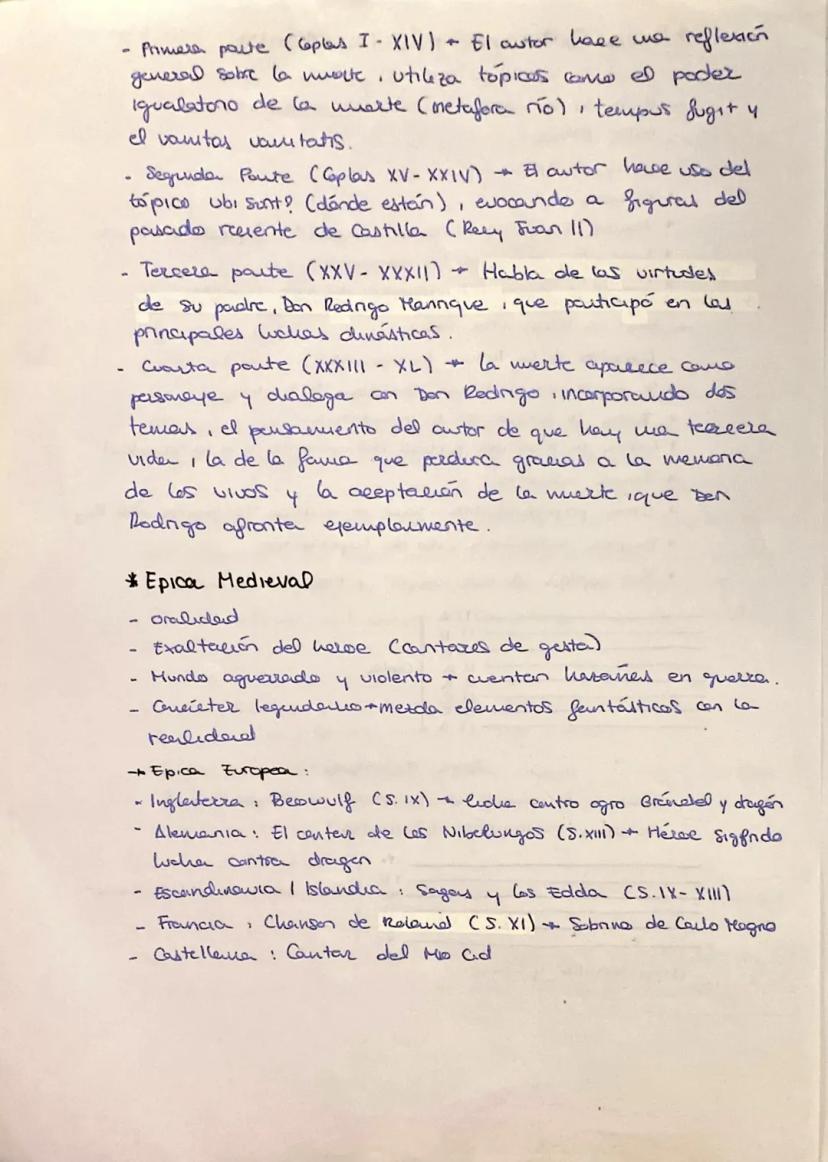 - Primera parte (Coplas I - XIV) → El autor hace una reflexión
general sobre la muerte, utiliza tópicos como el poder
igualatorio de la muerte (metafora río), tempus fugit y
el vanitas vanitatis.
- Segunda Parte (Coplas XV - XXIV) → El autor hace uso del
tópico Ubi Sunt? (dónde están), evocando a figuras del
pasado reciente de Castilla (Rey Juan II)
- Tercera parte (XXV - XXXII) → Habla de las virtudes
de su padre, Don Rodrigo Manrique, que participó en las
principales luchas dinásticas.
- Cuarta parte (XXXIII - XL) → la muerte aparece como
personaje y dialoga con Don Rodrigo, incorporando dos
temas, el pensamiento del autor de que hay una tercera
vida, la de la fama que perdura gracias a la memoria
de los vivos y la aceptación de la muerte, que Don
Rodrigo afronta ejemplarmente.
* Epica Medieval
- oralidad
- Exaltación del heroe (cantares de gesta)
- Mundo aguerrado y violento → cuentan hazañas en guerra.
- Carácter legendario → mezcla elementos fantásticos con la
realidad
→ Epica Europea:
- Inglaterra: Beowulf (S. IX) → lucha contra ogro Gréndel y dragón
- Alemania: El cantar de los Nibelungos (S. XIII) → Héroe Sigfrido
lucha contra dragon
- Escandinavia / Islandia: Sagas y los Edda (S. IX - XIII)
- Francia: Chanson de Roland (S. XI) → Sobrino de Carlo Magno
- Castellana: Cantar del Mio Cid